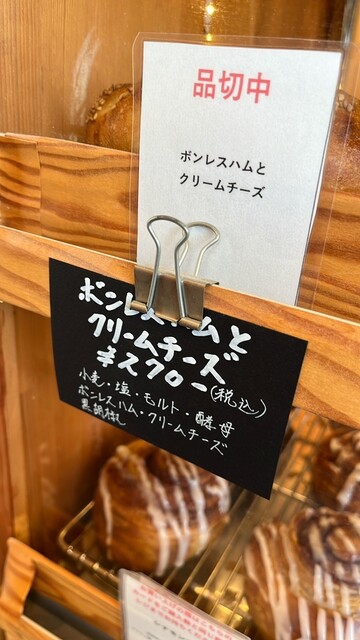 品切中
ボンレスハムと
クリームチーズ
ボンレスハムと
クリームチーズ
¥270-(税込)
小麦・塩・モルト・酵母
ボンレスハム・クリームチーズ
黒胡椒